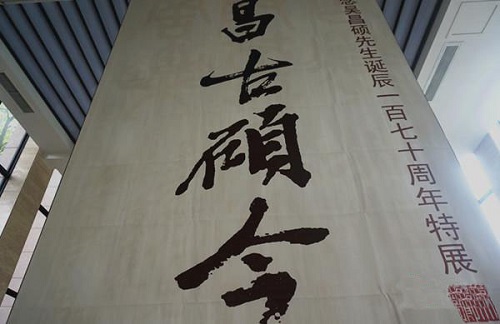 念吴昌硕先生诞辰一百七十周年特展
昌古硕今